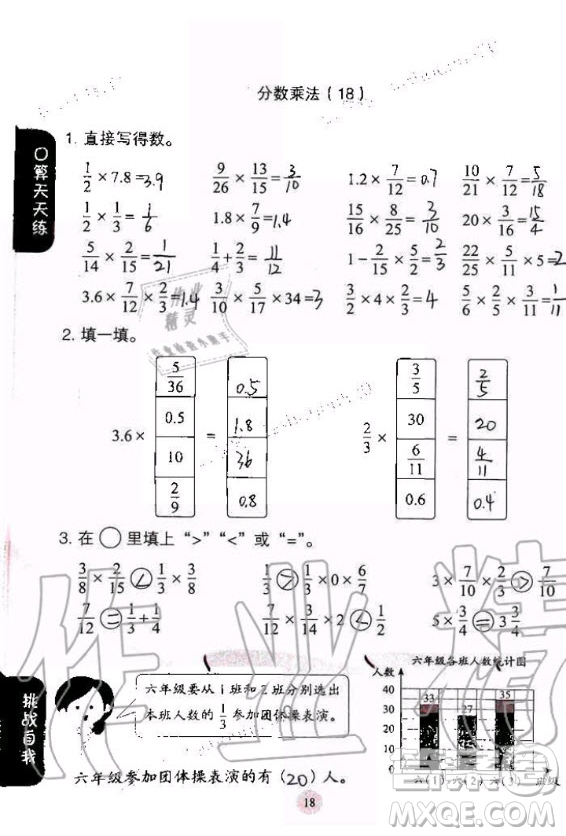 分数乘法(18)
口算天天练
1. 直接写得数。
1/2 × 7.8 = 3.9  9/26 × 13/15 = 3/10  1.2 × 7/12 = 0.7  10/21 × 7/12 = 5/18
1/2 × 1/3 = 1/6  1.8 × 7/9 = 1.4  15/16 × 8/25 = 3/10  20 × 3/16 = 15/4
5/14 × 2/15 = 1/21  1/4 + 2/3 = 11/12  1 - 2/15 × 5/2 =  22/25 × 5/11 × 5 = 2
3.6 × 7/12 × 2/3 = 1.4  3/10 × 5/17 × 34 = 3  3/2 × 4 × 2/3 = 4  5/6 × 2/5 × 3/11 = 1/11
2. 填一填。
3.6 ×
5/36
0.5
10
2/9
=
0.5
1.8
36
0.8
2/3 ×
3/5
30
6/11
0.6
=
2/5
20
4/11
0.4
3. 在○里填上“>”“<”或“=”。
3/8 × 2/15 < 1/3 × 3/8  1/3 > 1/3 × 0 × 6/7  3 × 7/10 × 2/3 > 7/10
7/12 = 1/3 + 1/4  7/12 × 2 < 1 1/2  5 × 3/4 = 3 3/4
挑战自我
六年级要从1班和2班分别选出
本班人数的1/3参加团体操表演。
六年级参加团体操表演的有(20)人。
六年级各班人数统计图
人数
40
30
20
10
0
33
27
35
六(1) 六(2) 六(3) 班级
18
作业精灵
作业精灵
答案圈
MXQE.COM